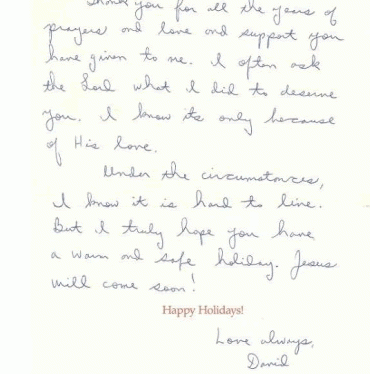 Thank you for all the years of
prayers and love and support you
have given to me. I often ask
the Lord what I did to deserve
you. I know its only because
of His love.
Under the circumstances,
I know it is hard to live.
But I truly hope you have
a warm and safe holiday. Jesus
will come soon!
Happy Holidays!
Love always,
David